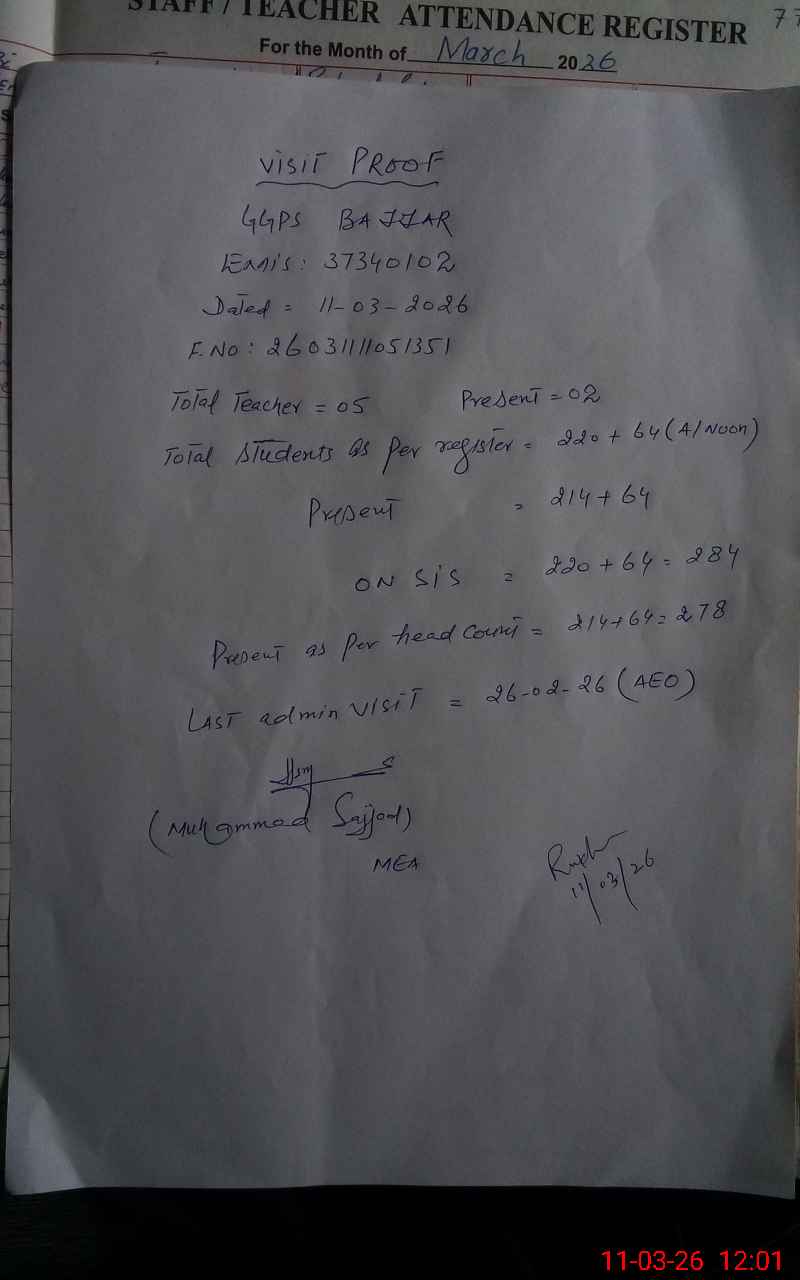 STAFF / TEACHER ATTENDANCE REGISTER 77
For the Month of March 2026
VISIT PROOF
GGPS BAJJAR
Emis: 37340102
Dated = 11-03-2026
F.No: 26031111051351
Total Teacher = 05 Present = 02
Total Students as per register = 220 + 64 (A/Noon)
Present = 214 + 64
ON SIS = 220 + 64 = 284
Present as per head Count = 214+64=278
LAST admin VISIT = 26-02-26 (AEO)
(Muhammad Sajjad)
MEA
11/03/26
11-03-26 12:01